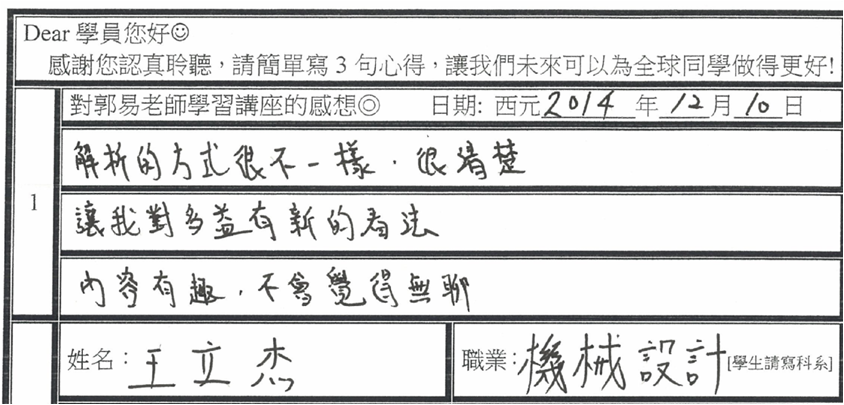 Dear 學員您好☺
感謝您認真聆聽，請簡單寫 3 句心得，讓我們未來可以為全球同學做得更好!
對郭易老師學習講座的感想◎ 日期: 西元 2014 年 12 月 10 日
解析的方式很不一樣，很清楚
1
讓我對多益有新的看法
內容有趣，不會覺得無聊
姓名：王立杰 職業：機械設計 [學生請寫科系]